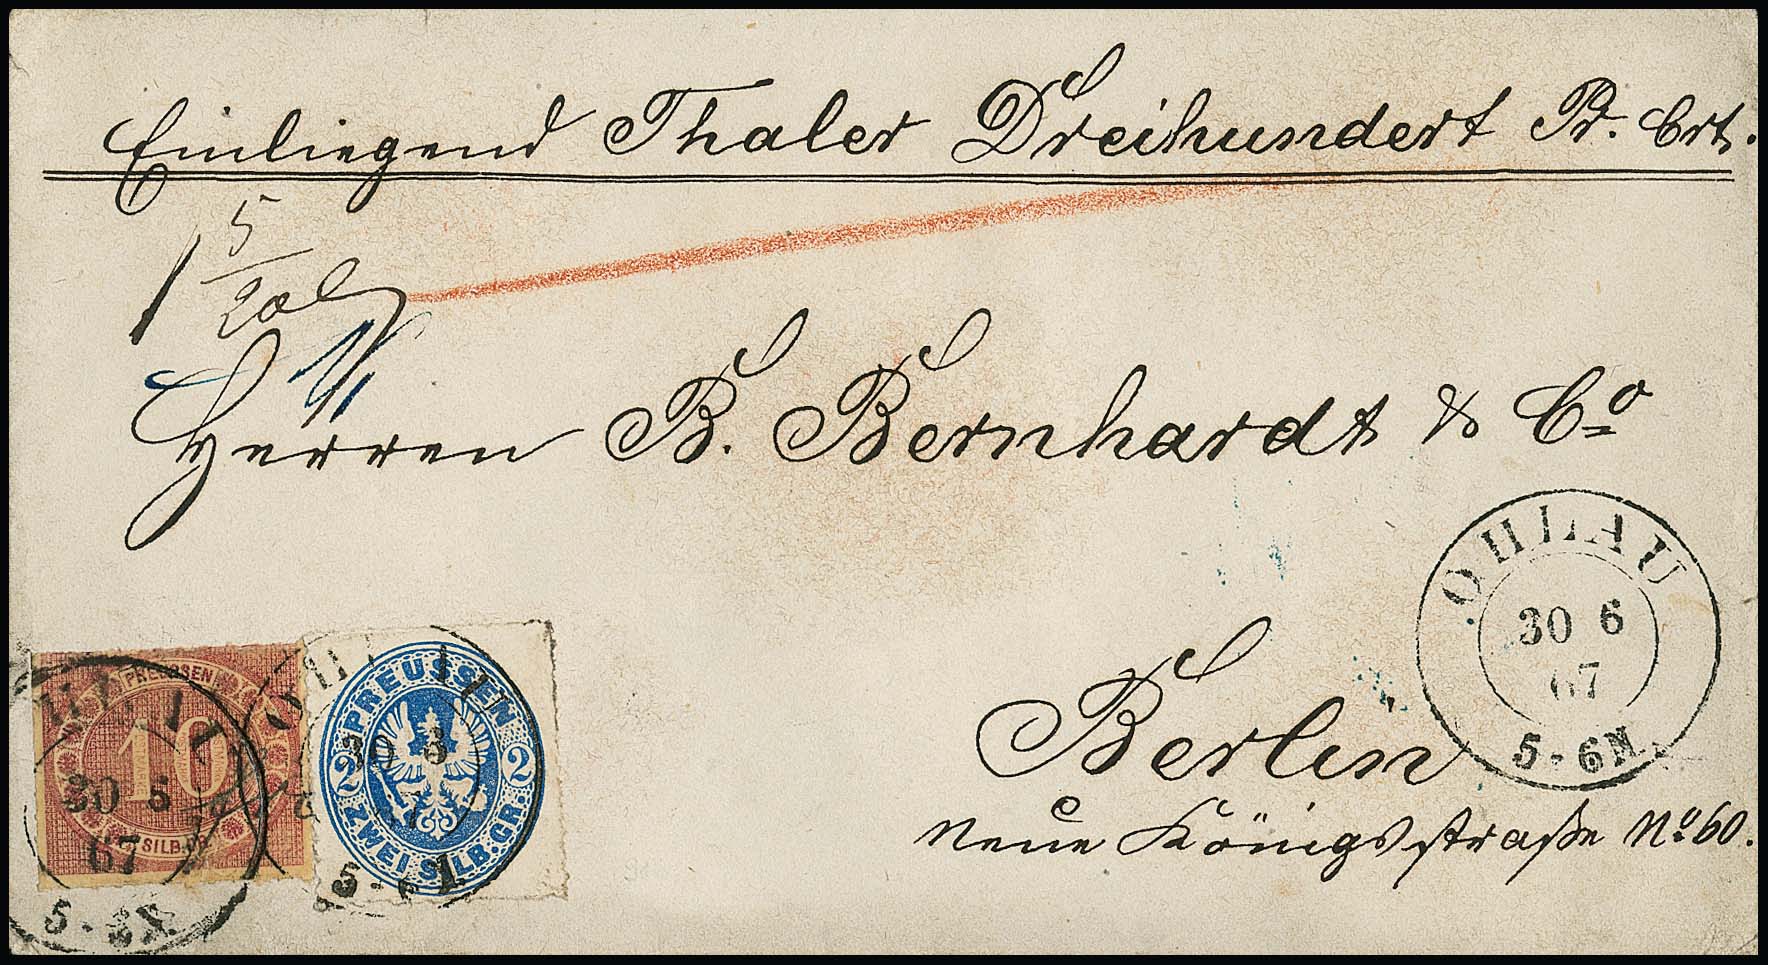 Einliegend Thaler Dreihundert Pr. Crt.
5
20
Herren B. Bernhardt & Co
OHLAU
30 6
67
5-6N.
Berlin
neue Königsstraße No 60.
PREUSSEN
10
SILB.GR.
30 6
67
PREUSSEN
2 2
ZWEI SILB.GR.
30 6
67
5-6